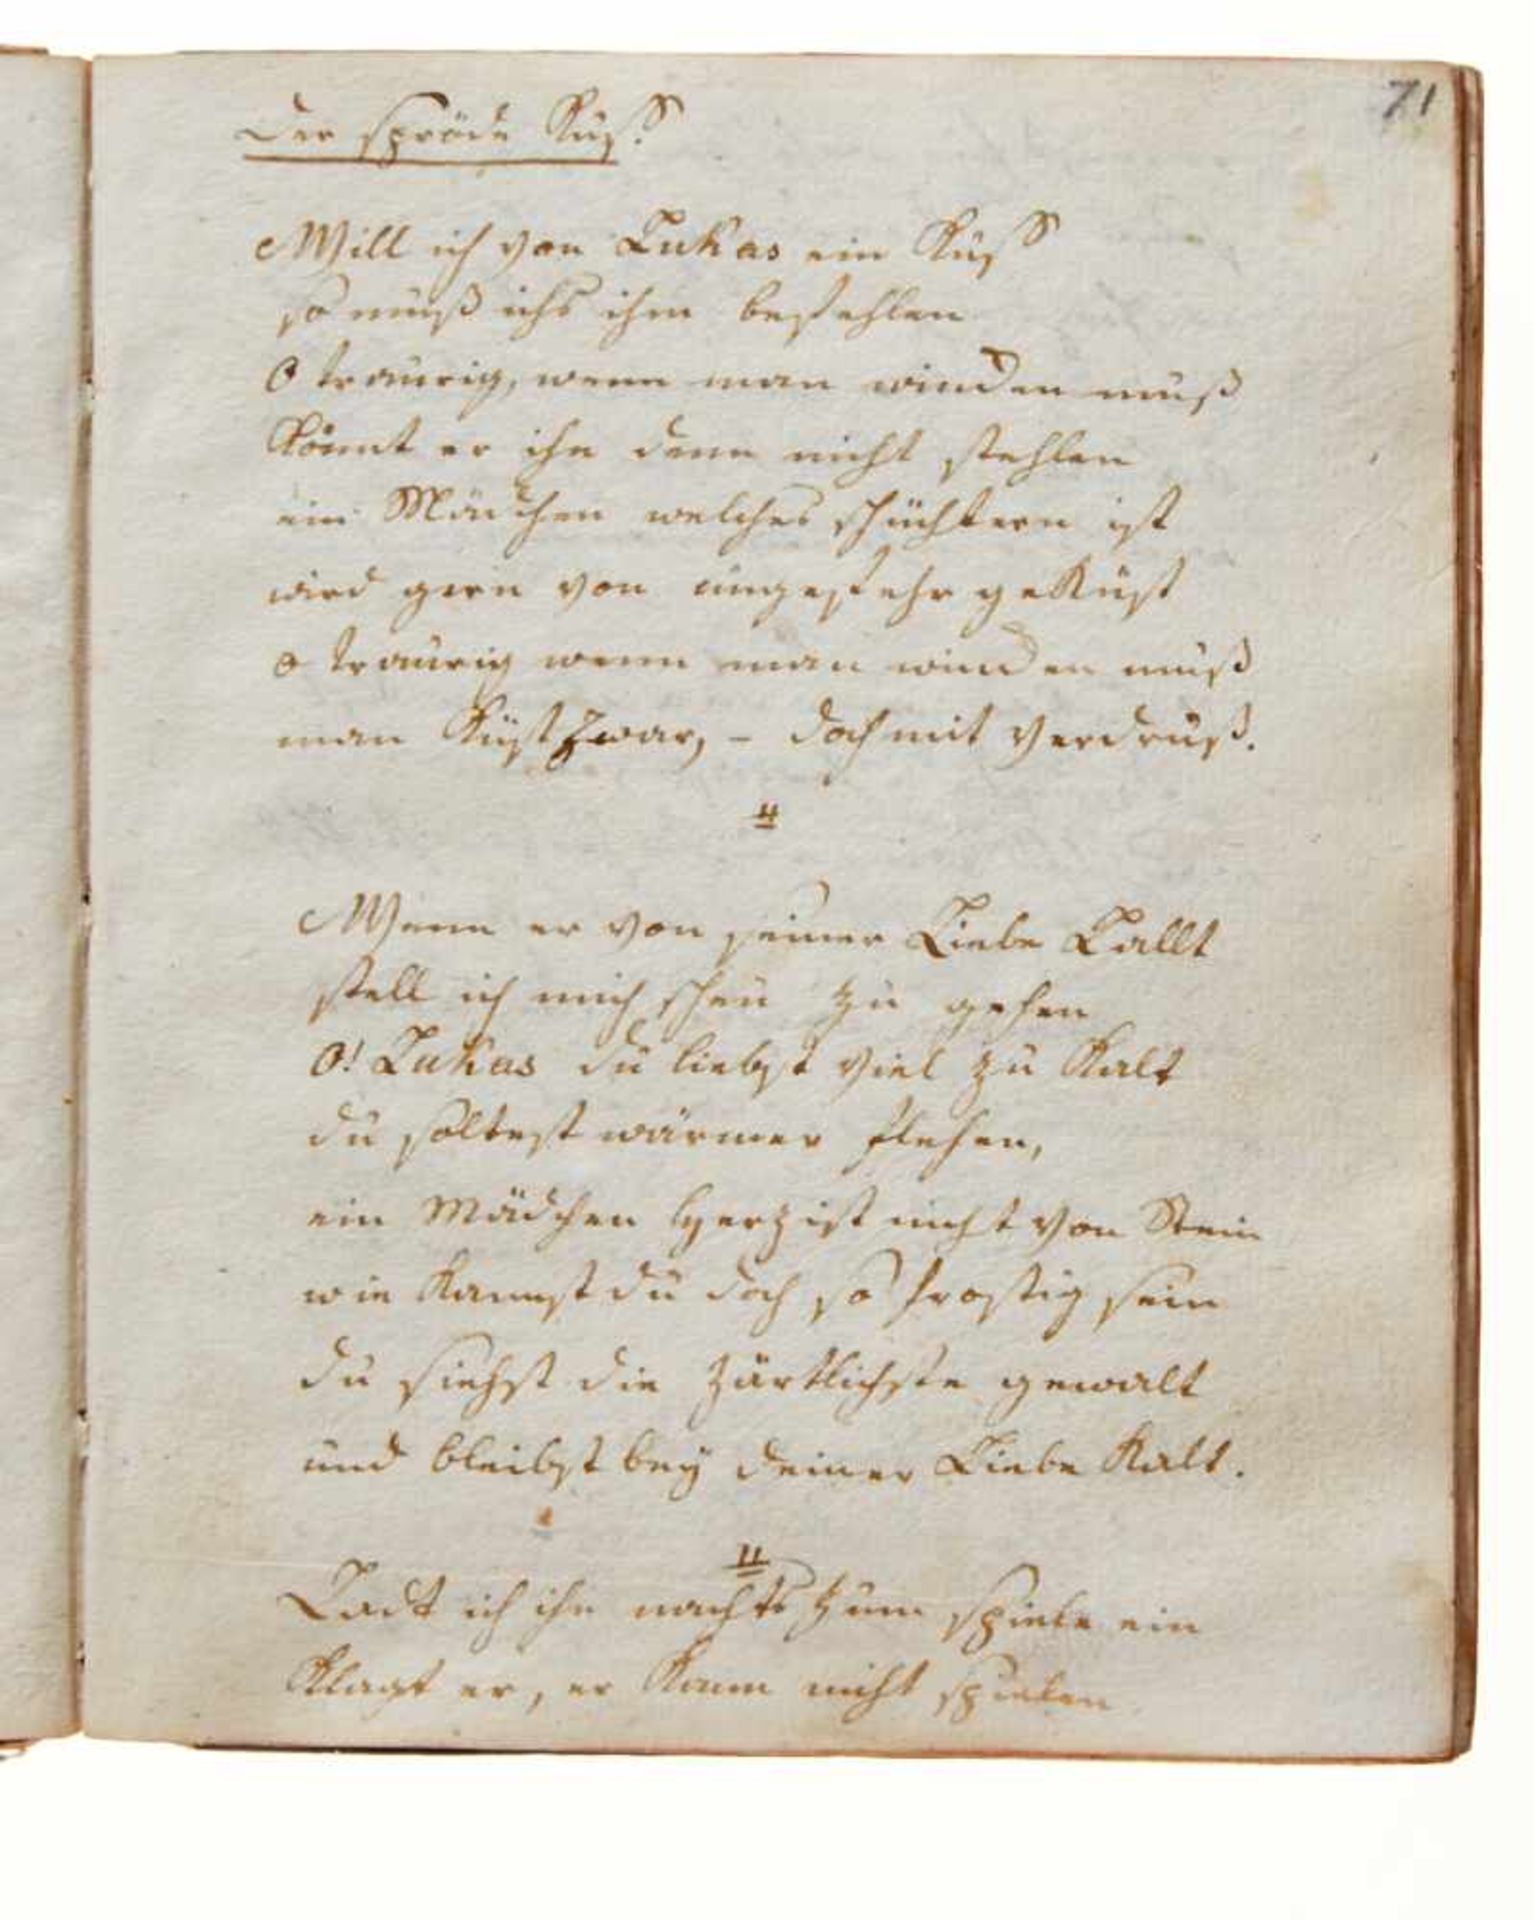 71
Der spröde Kuß.
Will ich von Lukas ein Kuß
so muß ichs ihm befehlen
O traurig, wenn man winden muß
Könnt er ihn denn nicht stehlen
ein Mädchen welches schüchtern ist
wird gern von ungefehr geküst
o traurig wenn man winden muß
man küst zwar, - doch mit Verdruß.
Wenn er von seiner Liebe Lallt
stell ich mich scheu zu gehen
O! Lukas du liebst viel zu kalt
du soltest wärmer flehen,
ein Mädchen Herz ist nicht von Stein
wie kannst du doch so frostig sein
du siehst die zärtlichste gewalt
und bleibst bey deiner Liebe kalt.
Ladt ich ihn nachts zum spiele ein
Klagt er, er kann nicht spielen